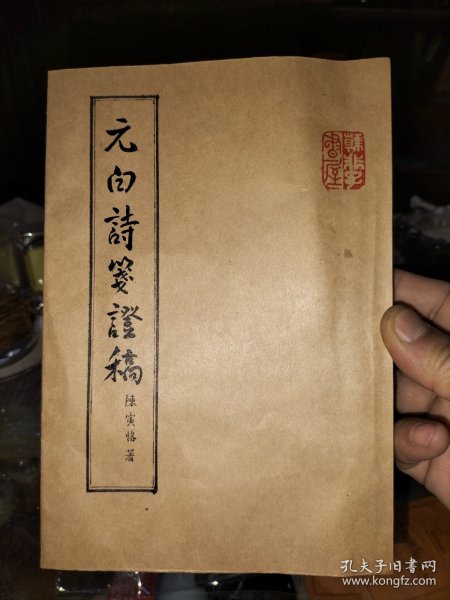 元白詩箋證稿
陳寅恪著
孔夫子旧书网
www.kongfz.com